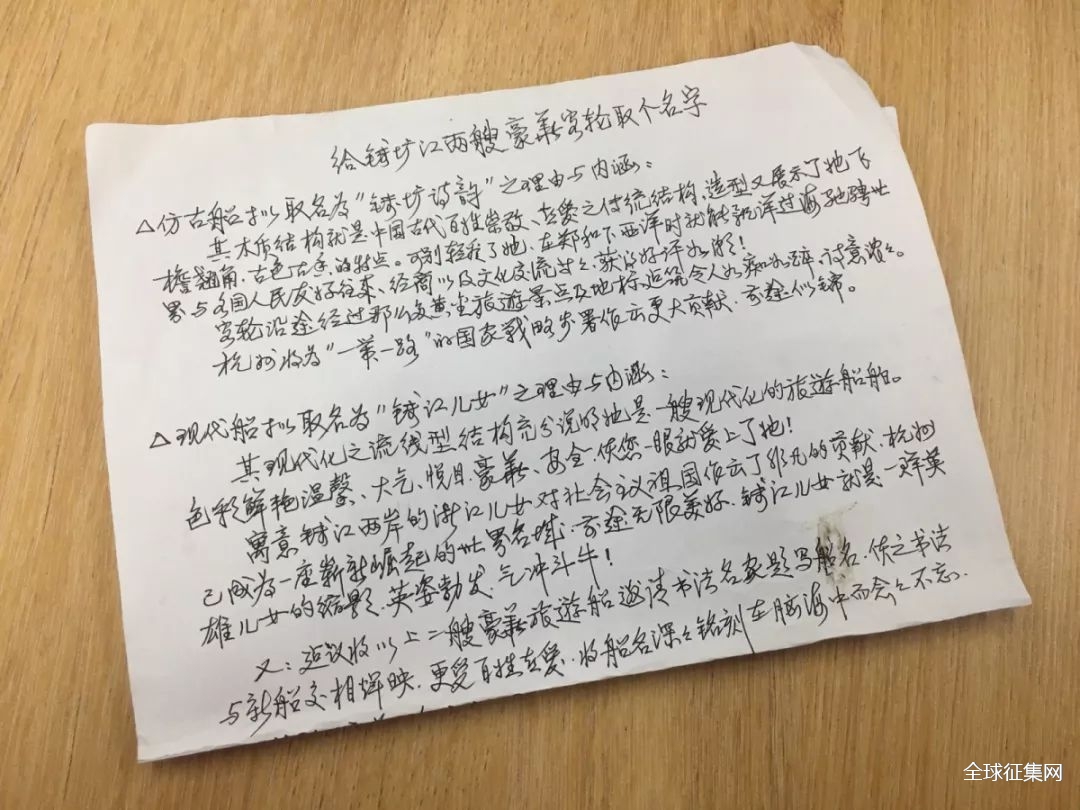 给钱塘江两艘豪华客轮取个名字
△仿古船拟取名为"钱塘诗韵"之理由与内涵:
其木质结构就是中国古代百姓崇敬、喜爱之传统结构,造型又展示了她飞
檐翘角、古色古香的特点。可别轻视了她,在郑和下西洋时就能飘洋过海驰骋世
界与各国人民友好往来、经商以及文化交流过々,获的好评如潮!
客轮沿途经过那么多黄金旅遊景点及地标建筑令人如痴如醉,诗意浓々。
杭州将为"一带一路"的国家战略步署作出更大贡献,前途似锦。
△现代船拟取名为"钱江儿女"之理由与内涵:
其现代化之流线型结构充分说明她是一艘现代化的旅遊船舶。
色彩鲜艳温馨、大气、悦目、豪华、安全,使您一眼就爱上了她!
寓意钱江两岸的浙江儿女对社会主义祖国作出了非凡的贡献,杭州
已成为一座崭新崛起的世界名城,前途无限美好,钱江儿女就是一群英
雄儿女的缩影,英姿勃发,气冲斗牛!
又:建议将以上二艘豪华旅遊船邀请书法名家题写船名,使之书法
与新船交相辉映,更受百姓喜爱,将船名深々铭刻在脑海中而念々不忘。
全球征集网